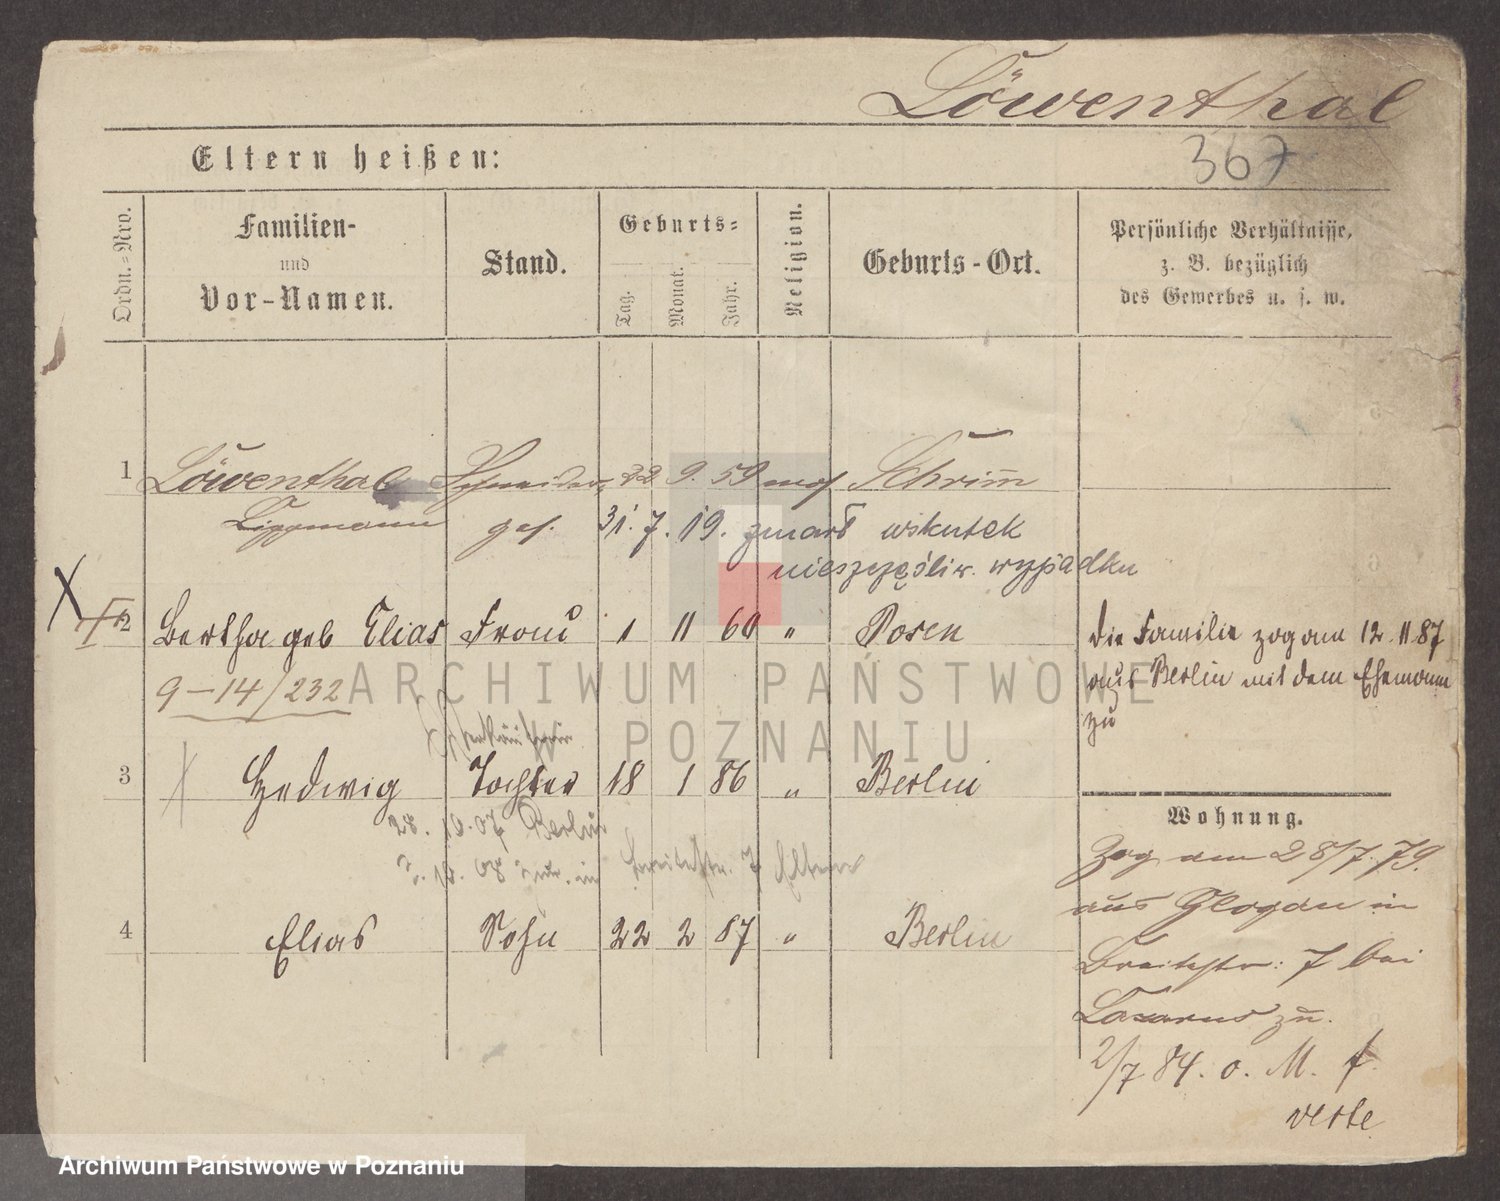 Löwenthal
367
Eltern heißen:
Ordn.=Nro.
Familien-
und
Vor-Namen.
Stand.
Geburts=
Tag.
Monat.
Jahr.
Religion.
Geburts-Ort.
Persönliche Verhältnisse,
z. B. bezüglich
des Gewerbes u. s. w.
1 Löwenthal Schneider 22 9. 59 mos Schrim
Lippmann gest. 31. 7. 19. zmarł wskutek
nieszczęśliw. wypadku
2 Bertha geb Elias Frau 1 11 60 " Posen
9-14/232
Die Familie zog am 12. 11 87
aus Berlin mit dem Ehemann
zu
Verkäuferin
3 Hedwig Tochter 18 1 86 " Berlin
28. 10. 07 Berlin
12. 08 zur. in Breitestr. 7 Eltern
4 Elias Sohn 22 2 87 " Berlin
Wohnung.
Zog am 28/7. 79.
aus Glogau in
Breitestr: 7 bei
Lazarus zu.
2/7 84. o. M. f.
verte
ARCHIWUM PAŃSTWOWE
W POZNANIU
Archiwum Państwowe w Poznaniu